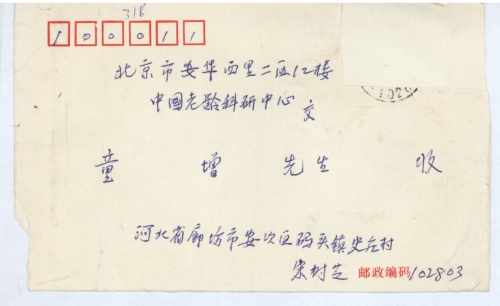 318
100011
北京市安华西里二区12楼
中国老龄科研中心 交
童 增 先生 收
河北省廊坊市安次区码头镇史庄村
宋封芝 邮政编码102803